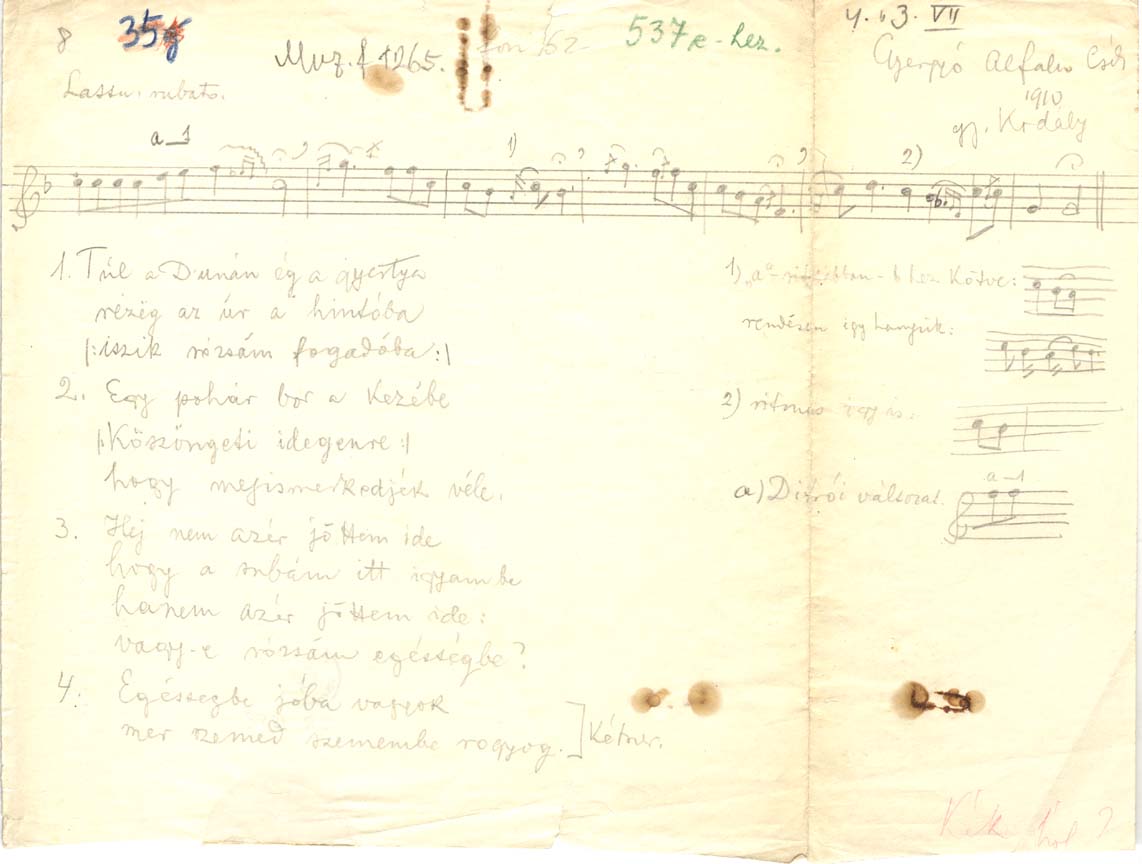 8
35g
Muz. f 1265.
537e-hez.
4. 3. VII
Gyergyó Alfalu Csík
1910
gy. Kodály
Lassu, rubato.
a_1
1)
2)
1. Túl a Dunán ég a gyertya
nézég az úr a hintóba
|:iszik rózsám fogadóba:|
2. Egy pohár bor a kezébe
|:Köszöngeti idegenre:|
hogy megismerkedjék véle.
3. Hej nem azér jöttem ide
hogy a subám itt igyam be
hanem azér jöttem ide:
vagy-e rózsám egésségbe?
4. Egésségbe jóba vagyok
mer szemed szemembe ragyog.
] Kétszer.
1) „a"- - b hez kötve:
rendesen így hangzik:
2) ritmus így is:
a) Ditrói változat.
a_1